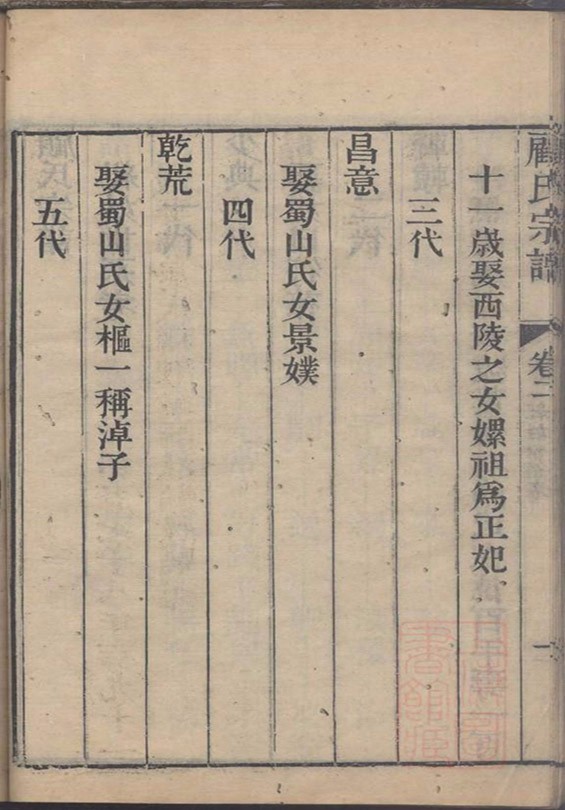 顧氏宗譜 卷二 一
十一歲娶西陵之女嫘祖爲正妃
三代
昌意
娶蜀山氏女景嬫
四代
乾荒
娶蜀山氏女樞一稱淖子
五代